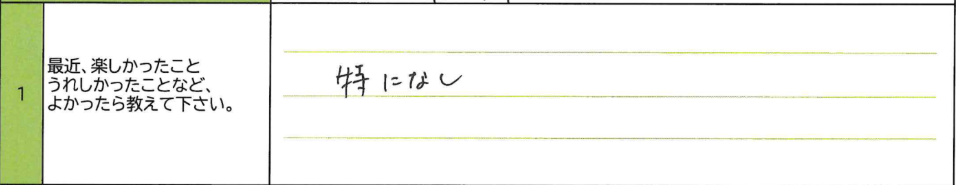 1
最近、楽しかったこと
うれしかったことなど、
よかったら教えて下さい。
特になし